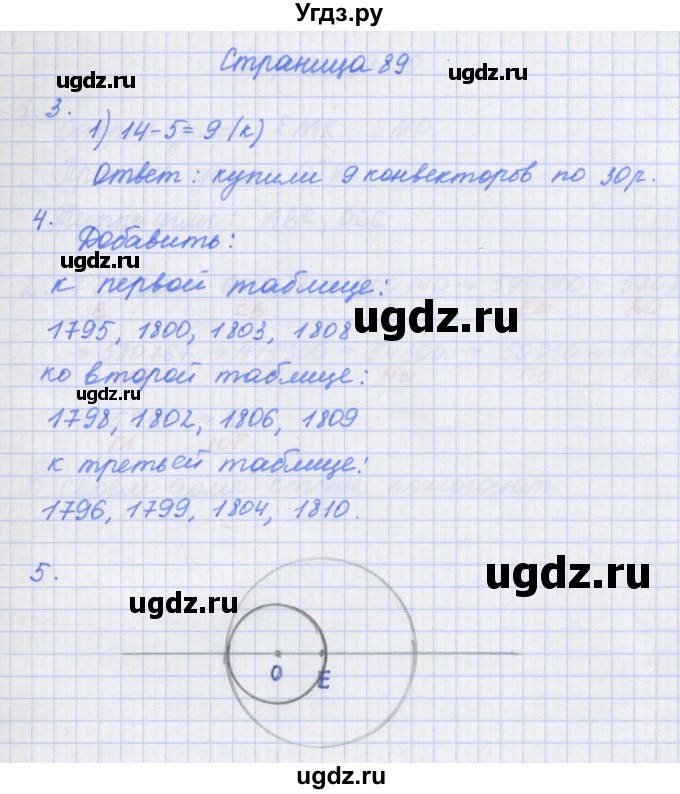 Угдз.ру
Страница 89
ugdz.ru
ugdz.ru
3.
1) 14-5=9 (к)
ugdz.ru
Ответ: купили 9 конвекторов по 30р.
4.
Добавить:
ugdz.ru
к первой таблице:
1795, 1800, 1803, 1808
ugdz.ru
ко второй таблице:
ugdz.ru
1798, 1802, 1806, 1809
ugdz.ru
к третьей таблице:
1796, 1799, 1804, 1810.
5.
ugdz.ru
ugdz.ru
О
Е
ugdz.ru
ugdz.ru